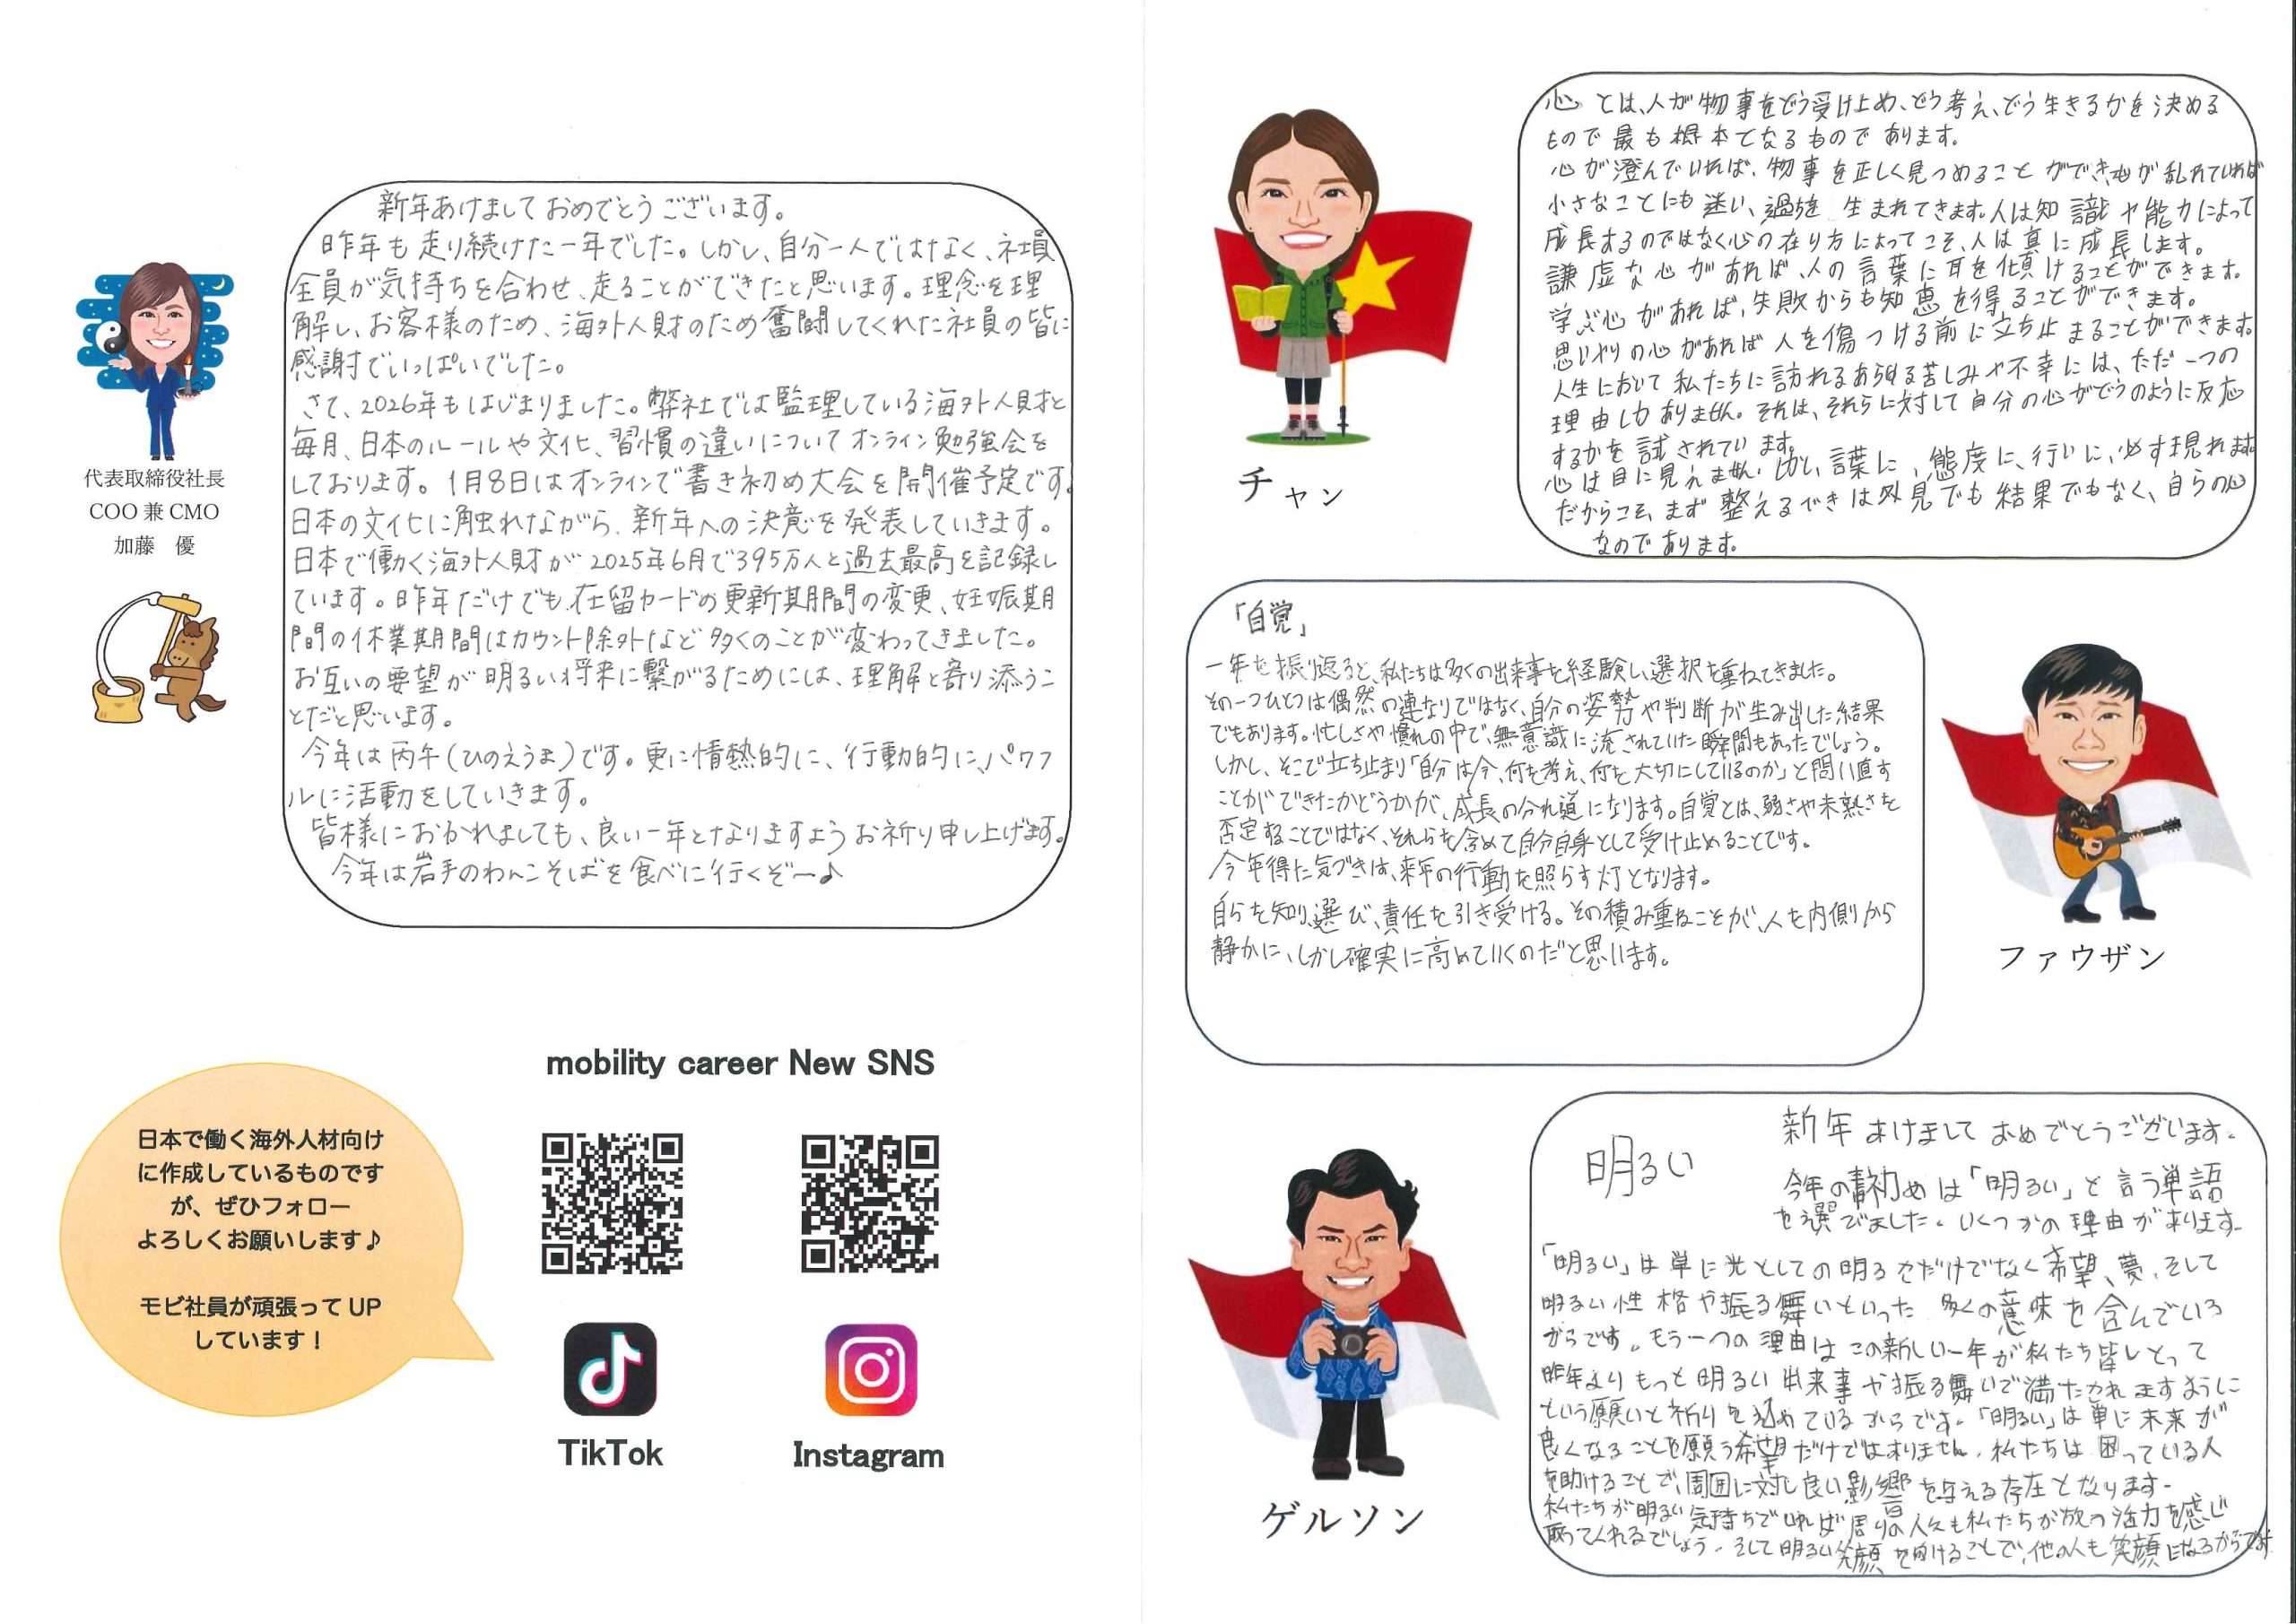 新年あけましておめでとうございます。
昨年も走り続けた一年でした。しかし、自分一人ではなく、社員
全員が気持ちを合わせ、走ることができたと思います。理念を理
解し、お客様のため、海外人財のため奮闘してくれた社員の皆に
感謝でいっぱいでした。
さて、2026年もはじまりました。弊社では監理している海外人財と
毎月、日本のルールや文化、習慣の違いについてオンライン勉強会を
しております。1月8日はオンラインで書き初め大会を開催予定です。
日本の文化に触れながら、新年への決意を発表していきます。
日本で働く海外人財が2025年6月で395万人と過去最高を記録し
ています。昨年だけでも、在留カードの更新期間の変更、妊娠期
間の休業期間はカウント除外など多くのことが変わってきました。
お互いの要望が明るい将来に繋がるためには、理解と寄り添うこ
とだと思います。
今年は丙午(ひのえうま)です。更に情熱的に、行動的に、パワフ
ルに活動をしていきます。
皆様におかれましても、良い一年となりますようお祈り申し上げます。
今年は岩手のわんこそばを食べに行くぞー♪
代表取締役社長
COO 兼 CMO
加藤 優
mobility career New SNS
日本で働く海外人材向け
に作成しているものです
が、ぜひフォロー
よろしくお願いします♪
モビ社員が頑張って UP
しています！
TikTok
Instagram
心とは、人が物事をどう受け止め、どう考え、どう生きるかを決める
もので最も根本てなるものであります。
心が澄んでいれば、物事を正しく見つめることができ、心が乱れていれば
小さなことにも迷い、過ちを 生まれてきます。人は知識や能力によって
成長するのではなく心の在り方によってこそ、人は真に成長します。
謙虚な心があれば、人の言葉に耳を傾けることができます。
学ぶ心があれば、失敗からも知恵を得ることができます。
思いやりの心があれば人を傷つける前に立ち止まることができます。
人生において私たちに訪れるあらゆる苦しみや不幸には、ただ一つの
理由しかありません。それは、それらに対して自分の心がどうのように反応
するかを試されています。
心は目に見えません。しかし、言葉に、態度に、行いに、必ず現れます
だからこそ、まず整えるできは外見でも結果でもなく、自らの心
なのであります。
チャン
「自覚」
一年を振り返ると、私たちは多くの出来事を経験し、選択を重ねてきました。
その一つひとつは偶然の連なりではなく、自分の姿勢や判断が生み出した結果
でもあります。忙しさや慣れの中で、無意識に流されていた瞬間もあったでしょう。
しかし、そこで立ち止まり「自分は今、何を考え、何を大切にしているのか」と問い直す
ことができたかどうかが、成長の分れ道になります。自覚とは、弱さや未熟さを
否定することではなく、それらを含めて自分自身として受け止めることです。
今年得た気づきは、来年の行動を照らす灯となります。
自らを知り、選び、責任を引き受ける。その積み重ねことが、人を内側から
静かに、しかし確実に高めていくのだと思います。
ファウザン
新年あけましておめでとうございます。
明るい
今年の書初めは「明るい」と言う単語
を選でました。いくつかの理由が有ります。
「明るい」は単に光としての明るさだけでなく希望、夢、そして
明るい性格や振る舞いといった 多くの意味を含んでいる
からです。もう一つの理由はこの新しい一年が私たち皆にとって
昨年よりもっと明るい出来事や振る舞いで満たされますように
という願いと祈りを込めているからです。「明るい」は単に未来が
良くなることを願う希望だけではありません。私たちは困っている人
を助けることで、周囲に対し良い影響を与える存在となります。
私たちが明るい気持ちでいれば周りの人々も私たちが放つ活力を感じ
取ってくれるでしょう。そして明るい笑顔を向けることで、他の人も笑顔になるからです。
ゲルソン